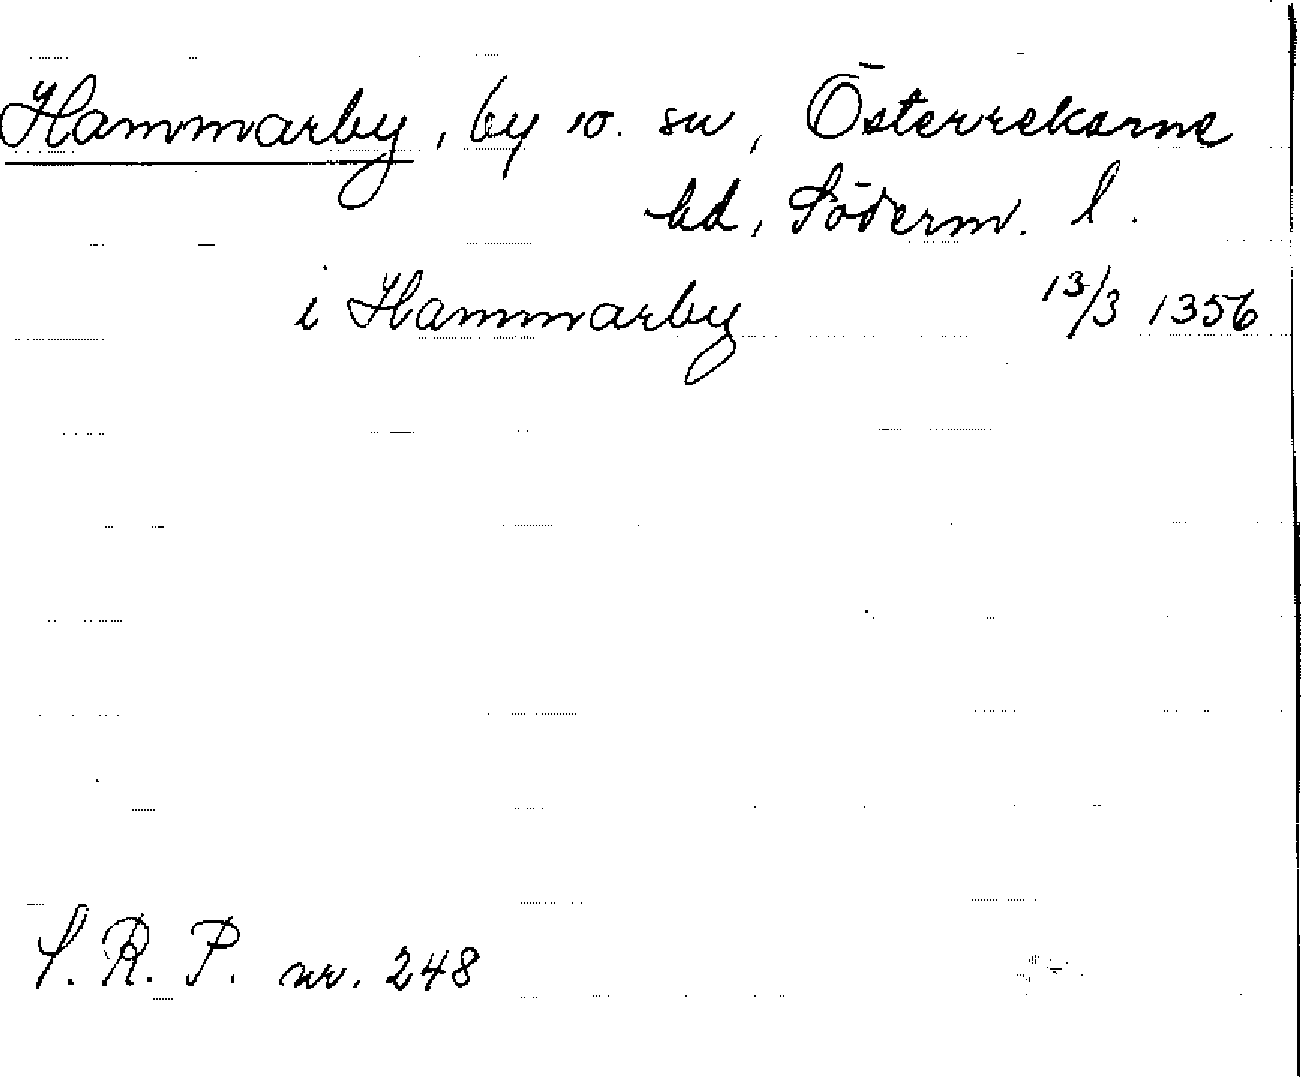 Hammarby, by o. sn, Österrekarne
hd, Söderm. l.
i Hammarby 13/3 1356
S. R. P. nr. 248